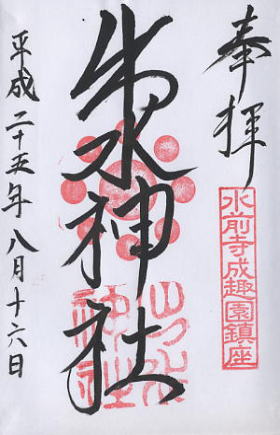 奉拝
水前寺成趣園鎮座
出水神社
出水神社
平成二十五年八月十六日